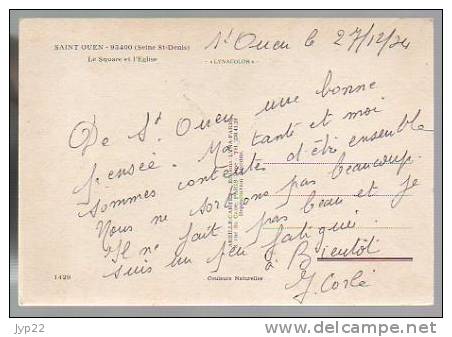 SAINT OUEN - 93400 (Seine St-Denis)
Le Square et l'Eglise
"LYNACOLOR"
St Ouen le 27/12/74
De St Ouen une bonne
pensée. Ma tante et moi
sommes contentes d'être ensemble
Nous ne sortons pas beaucoup.
Il ne fait pas beau et je
suis un peu fatiguée.
à Bientôt
J. Corlé
1429
Couleurs Naturelles
jyp22
www.delcampe.net